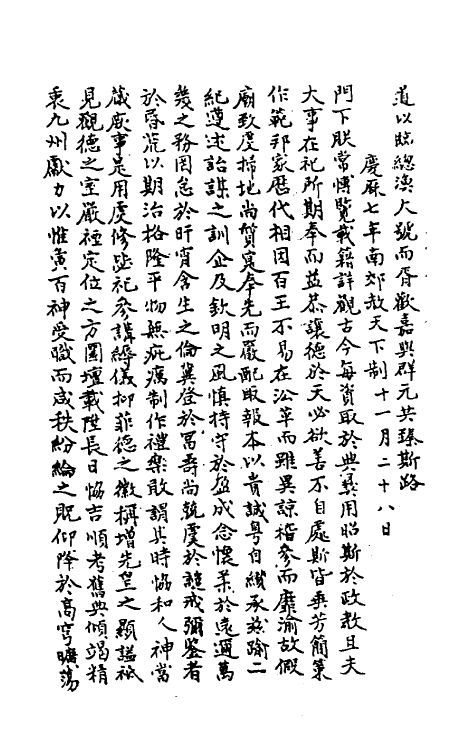 道以臨總渙大號而胥歡嘉與群元共臻斯路
慶厤七年南郊赦天下制十一月二十八日
門下朕常愽覽載籍詳觀古今每資取於典彛用昭斯於政教且夫
大事在祀所期奉而益恭讓德於天必欲善不自處斯皆垂芳簡策
作範邦家歷代相因百王不易在㳂革而雖異諒稽參而靡渝故假
廟致䖍掃地尚質寔奉先而嚴配取報本以貴誠粤自纘承玆踰二
紀遵述詒謀之訓企及欽明之風慎持守於盈成念懷柔於遠邇萬
㡬之務罔怠於旰宵含生之倫冀登於冨壽尚兢䖍於謹戒彌鉴者
於昏荒以期治格隆平物無疵癘制作禮樂敢謂其時恊和人神當
蕆厥事是用虔修毖祀參講縟儀抑菲德之徽稱增先皇之顯謚祗
見觀德之室嚴禋定位之方圜壇載陞長日恊吉順考舊典傾竭精
衷九州獻力以惟寅百神受職而咸秩紛綸之貺仰降於高穹曠蕩